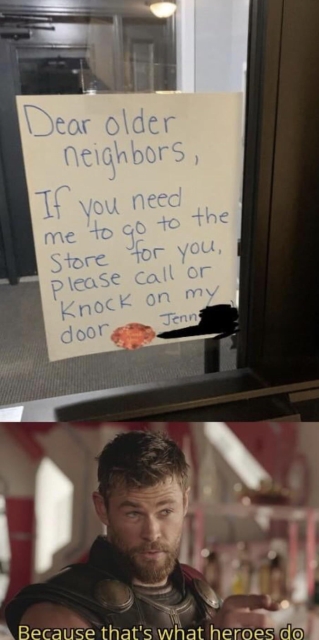 Dear older
neighbors,
If you need
me to go to the
Store for you,
please call or
knock on my
door
Jenn
Because that's what heroes do